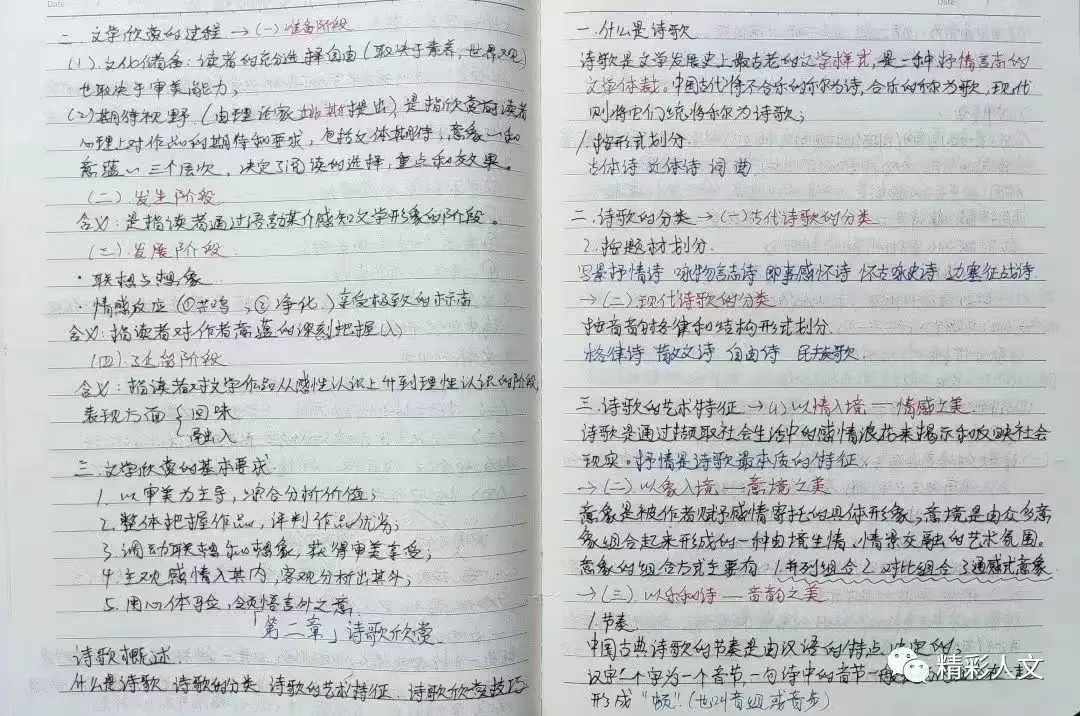 Date
二. 文学欣赏的过程 →(一)准备阶段
(1)文化储备:读者的充分选择自由(取决于素养,世界观)
也取决于审美能力;
(2)期待视野(由理论家姚斯提出)是指欣赏前读者
心理上对作品的期待和要求,包括文体期待,意象〃和
意蕴〃三个层次,决定了阅读的选择,重点和效果。
(二)发生阶段
含义:是指读者通过语言媒介感知文学形象的阶段。
(三)发展阶段
·联想与想象
·情感反应(①共鸣;②净化)享受极致的标志
含义:指读者对作者意蕴的深刻把握(入)
(四)延留阶段
含义:指读者对文学作品从感性认识上升到理性认识的阶段,
表现方面{回味
融入
三.文学欣赏的基本要求.
1.以审美为主导,综合分析价值;
2.整体把握作品,评判作品优劣;
3.调动联想和想象,获得审美享受;
4.主观感情入其内,客观分析出其外;
5.用心体验,领悟言外之意,
「第二章」诗歌欣赏
诗歌概述.
什么是诗歌 诗歌的分类 诗歌的艺术特征,诗歌欣赏技巧
Date
一.什么是诗歌
诗歌是文学发展史上最古老的文学样式,是一种抒情言志的
文学体裁。中国古代将不合乐的称为诗,合乐的称为歌,现代
则将它们统称为诗歌;
1.按形式划分
古体诗 近体诗 词 曲
二.诗歌的分类→(一)古代诗歌的分类
2.按题材划分.
写景抒情诗 咏物言志诗 即事感怀诗 怀古咏史诗 边塞征战诗
→(二)现代诗歌的分类
按音韵格律和结构形式划分.
格律诗 散文诗 自由诗 民族歌.
三.诗歌的艺术特征.→(1)以情入境—情感之美.
诗歌是通过撷取社会生活中的感情浪花来揭示和反映社会
现实。抒情是诗歌最本质的特征.
→(二)以象入境—意境之美
意象是被作者赋予感情寄托的具体形象,意境是由众多意
象组合起来形成的一种由境生情、情景交融的艺术氛围。
意象的组合方式主要有 1.并列组合 2.对比组合 3.通感式意象
→(三)以乐和诗—音韵之美
1.节奏.
中国古典诗歌的节奏是由汉语的特点决定的;
汉字一个字为一个音节,一句诗中的音节一般
形成“顿”(也叫音组或音步)
精彩人文